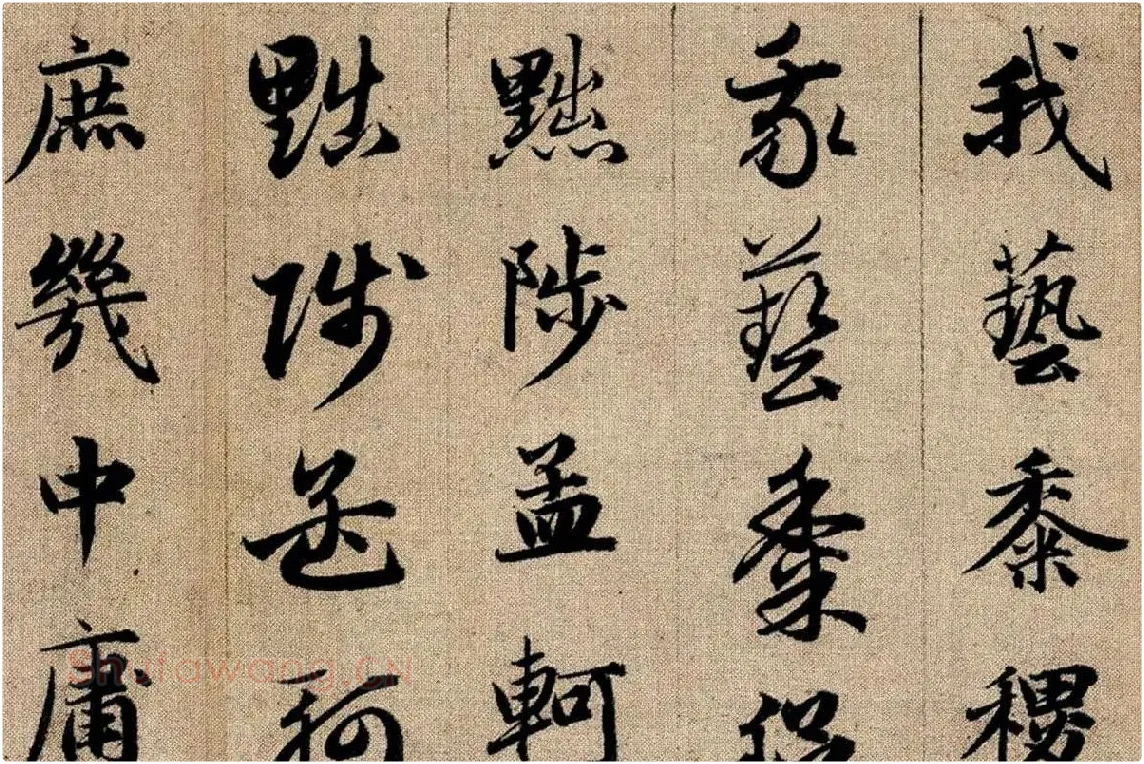 我藝黍稷
我藝黍稷
黜陟孟軻
黜陟孟軻
庶幾中庸
Shufawang.CN